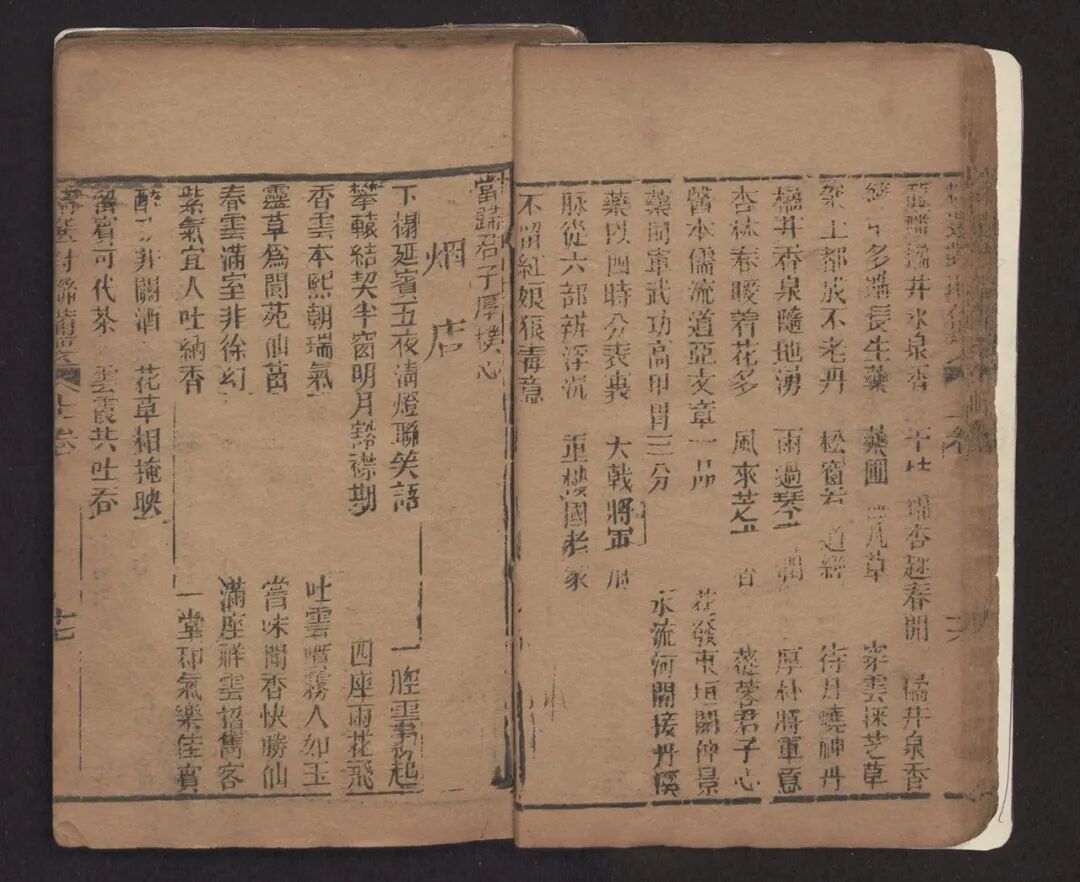 井水泉香 杏趂春開 橘井泉香
多蒔長生藥 藥圃 凡草 穿雲採芝草
架上都成不老丹 松窗 道經 待月燒神丹
橘井香泉隨地湧 雨過琴 潤 厚朴將軍意
杏林春暖着花多 風來芝 香 蓯蓉君子心
醫本儒流道亞文章一品 花發東垣開仲景
藥 軍武功高甲冑三分 水流河間接丹溪
藥投四時分表裏 大戟將軍
脉從六部辨浮沉 重樓國老家
不留紅娘狼毒意
當歸君子厚樸心
烟店
下榻延賓五夜清燈聯笑語 一腔雲霧起
攀轅結契半窗明月豁襟期 四座雨花飛
香雲本熙朝瑞氣 吐雲噴霧人如玉
靈草爲閬苑仙苗 嘗味聞香快勝仙
春雲滿室非徐幻 滿座祥雲留雋客
紫氣宜人吐納香 一堂和氣樂佳賓
醉 非關酒 花草相掩映
留賓可代茶 雲霞共吐吞
對聯備要 卷 十七